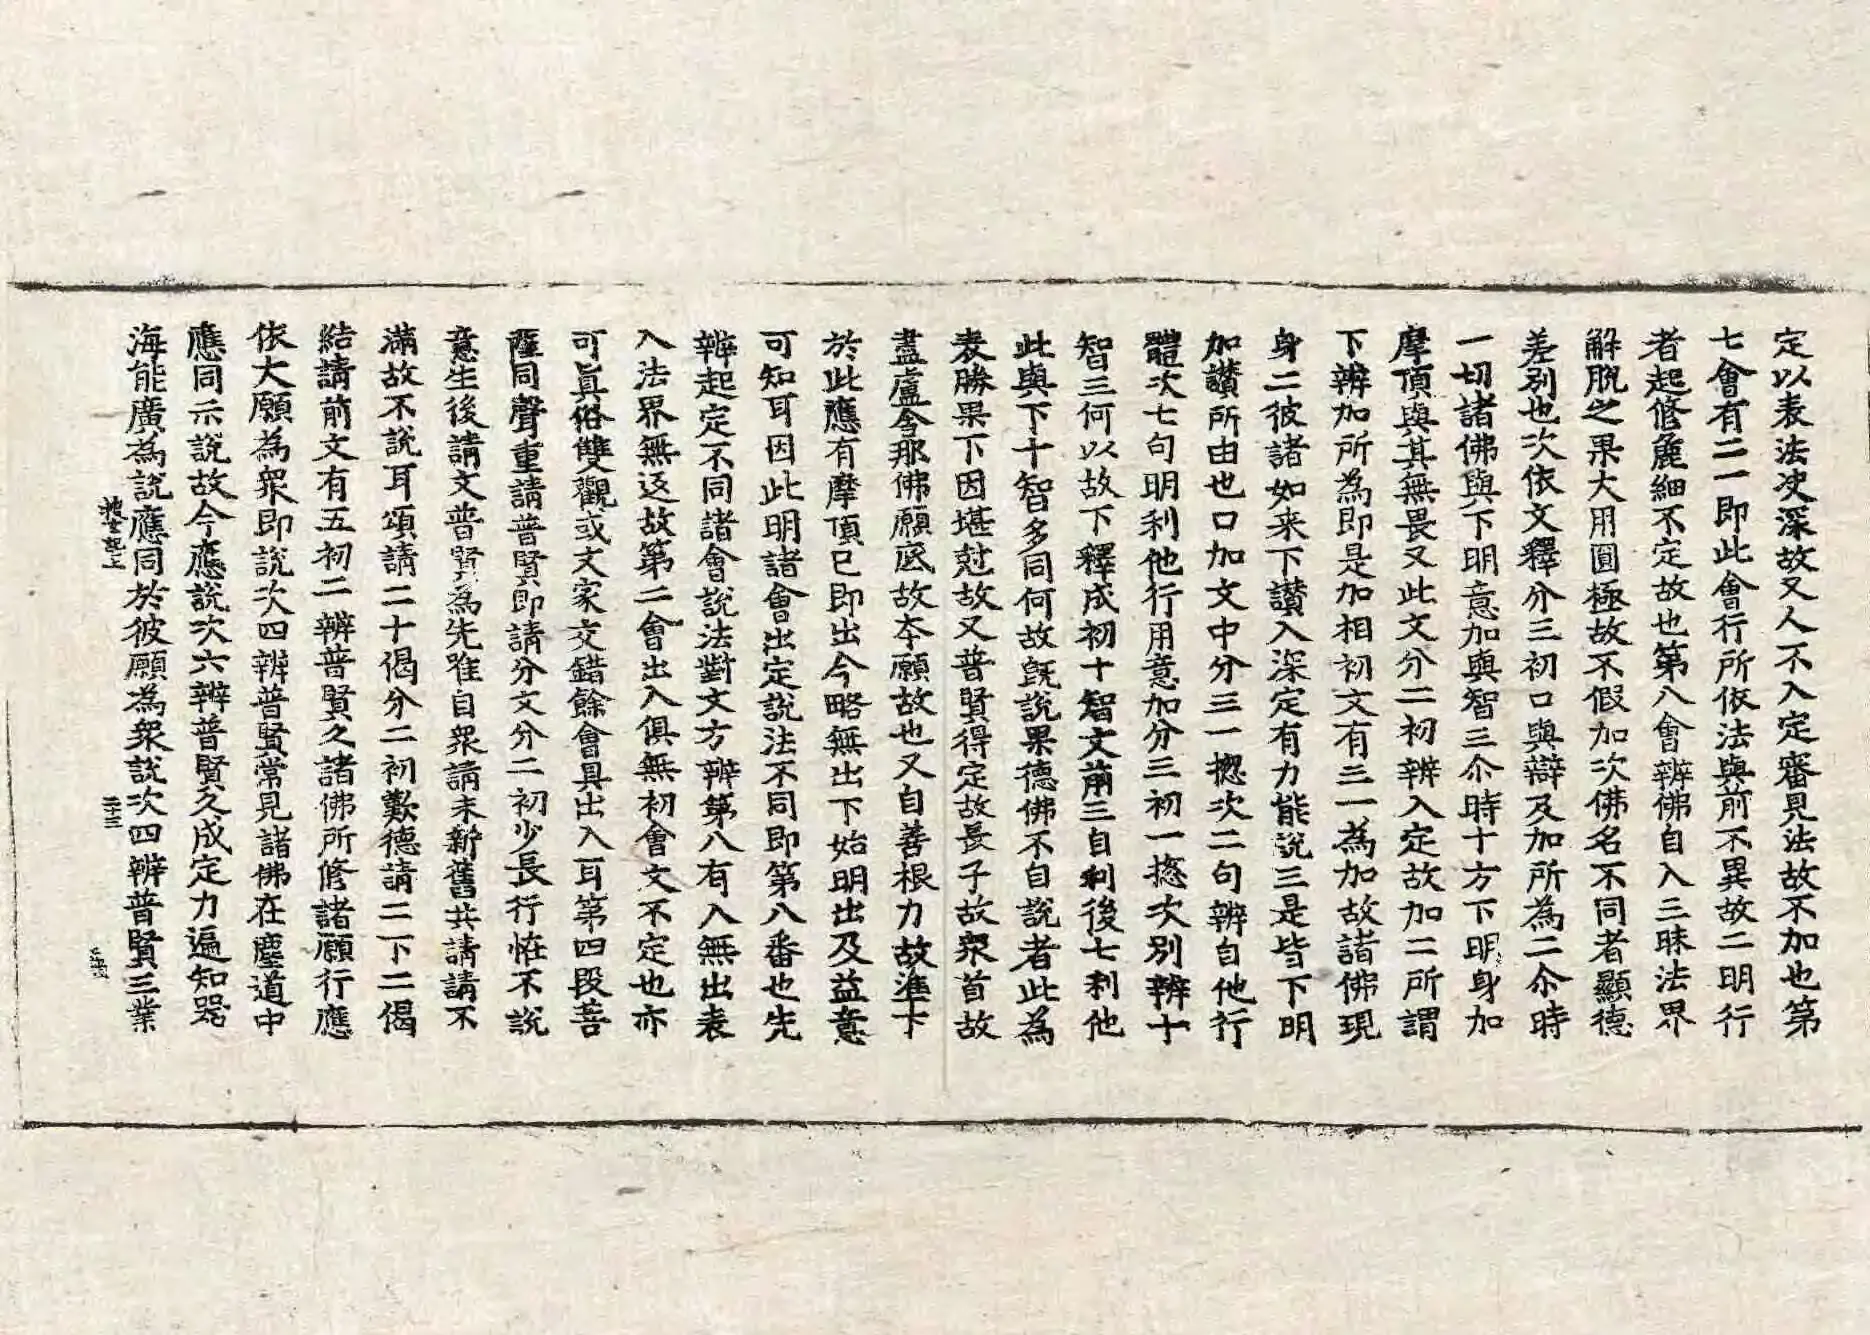 定以表法決深故又人不入定審見法故不加也第
七會有二一即此會行所依法與前不異故二明行
者起修麁細不定故也第八會辨佛自入三昧法界
解脫之果大用圓極故不假加次佛名不同者顯德
差別也次依文釋分三初口與辯及加所為二尒時
一切諸佛與下明意加與智三尒時十方下明身加
摩頂與其無畏又此文分二初辨入定故加二所謂
下辨加所為即是加相初文有三一為加故諸佛現
身二彼諸如来下讃入深定有力能說三是皆下明
加讃所由也口加文中分三一揔次二句辨自他行
體次七句明利他行用意加分三初一揔次別辨十
智三何以故下釋成初十智文前三自利後七利他
此與下十智多同何故旣說果德佛不自說者此為
表勝果下因堪尅故又普賢得定故長子故衆首故
盡盧舍那佛願底故本願故也又自善根力故准下
於此應有摩頂已即出今略無出下始明出及益意
可知耳因此明諸會出定說法不同即第八番也先
辨起定不同諸會說法對文方辨第八有入無出表
入法界無返故第二會出入俱無初會文不定也亦
可眞俗雙觀或文家交錯餘會具出入耳第四段菩
薩同聲重請普賢即請分文分二初少長行恠不說
意生後請文普賢為先唯自衆請未新舊共請請不
滿故不說耳頌請二十偈分二初歎德請二下二偈
結請前文有五初二辨普賢久諸佛所修諸願行應
依大願為衆即說次四辨普賢常見諸佛在塵道中
應同示說故今應說次六辨普賢久成定力遍知器
海能廣為說應同於彼願為衆說次四辨普賢三業
二十三